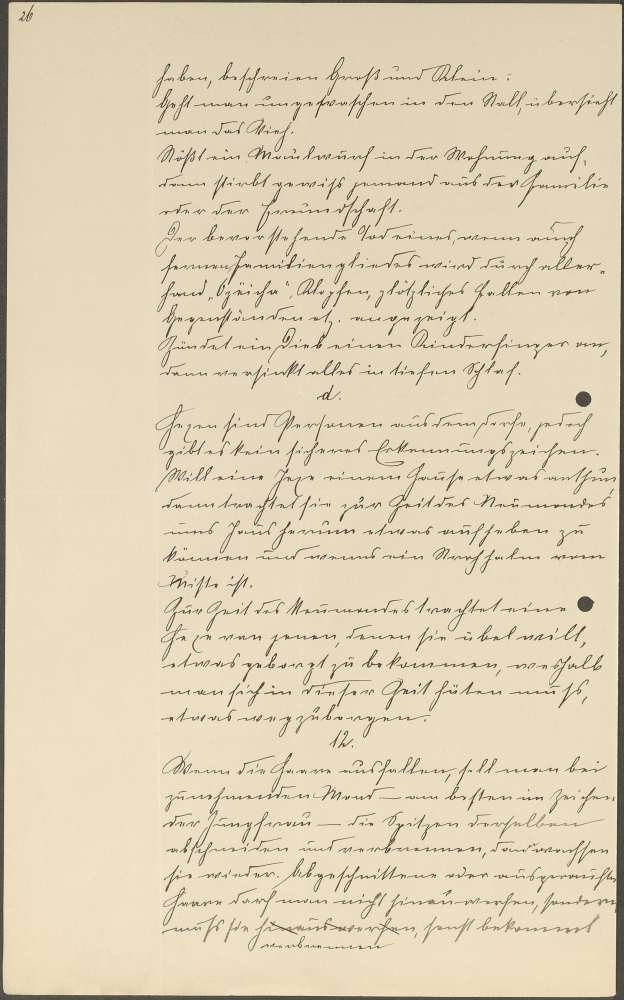 26
haben, beschreien Groß und Klein.
Geht man ungewaschen in den Stall, übersieht
man das Vieh.
Stößt ein Maulwurf in der Wohnung auf,
dann stirbt gewiß jemand aus der Familie
oder der Freundschaft.
Der bevorstehende Tod eines, wenn auch
fernen Familiengliedes wird durch aller-
hand „Ozeicha“, Klopfen, plötzliches Fallen von
Gegenständen etz. angezeigt.
Zündet ein Dieb einen Kinderfinger an,
dann versinkt alles in tiefen Schlaf.
d.
Hexen sind Personen aus dem Dorfe, jedoch
gibt es kein sicheres Erkennungszeichen.
Will eine Hexe einem Hause etwas anthun
dann trachtet sie zur Zeit des Neumondes
ums Haus herum etwas aufheben zu
können und wenns ein Strohhalm vom
Miste ist.
Zur Zeit des Neumondes trachtet eine
Hexe von jenen, denen sie übel will,
etwas geborgt zu bekommen, weshalb
man sich in dieser Zeit hüten muß,
etwas wegzuborgen.
12.
Wenn die Haare ausfallen, soll man bei
zunehmenden Mond — am besten im Zeichen
der Jungfrau — die Spitzen derselben
abschneiden und verbrennen, dann wachsen
sie wieder. Abgeschnittene oder ausgeraufte
Haare darf man nicht hinauswerfen, sondern
muß sie hinauswerfen, sonst bekommt
verbrennen